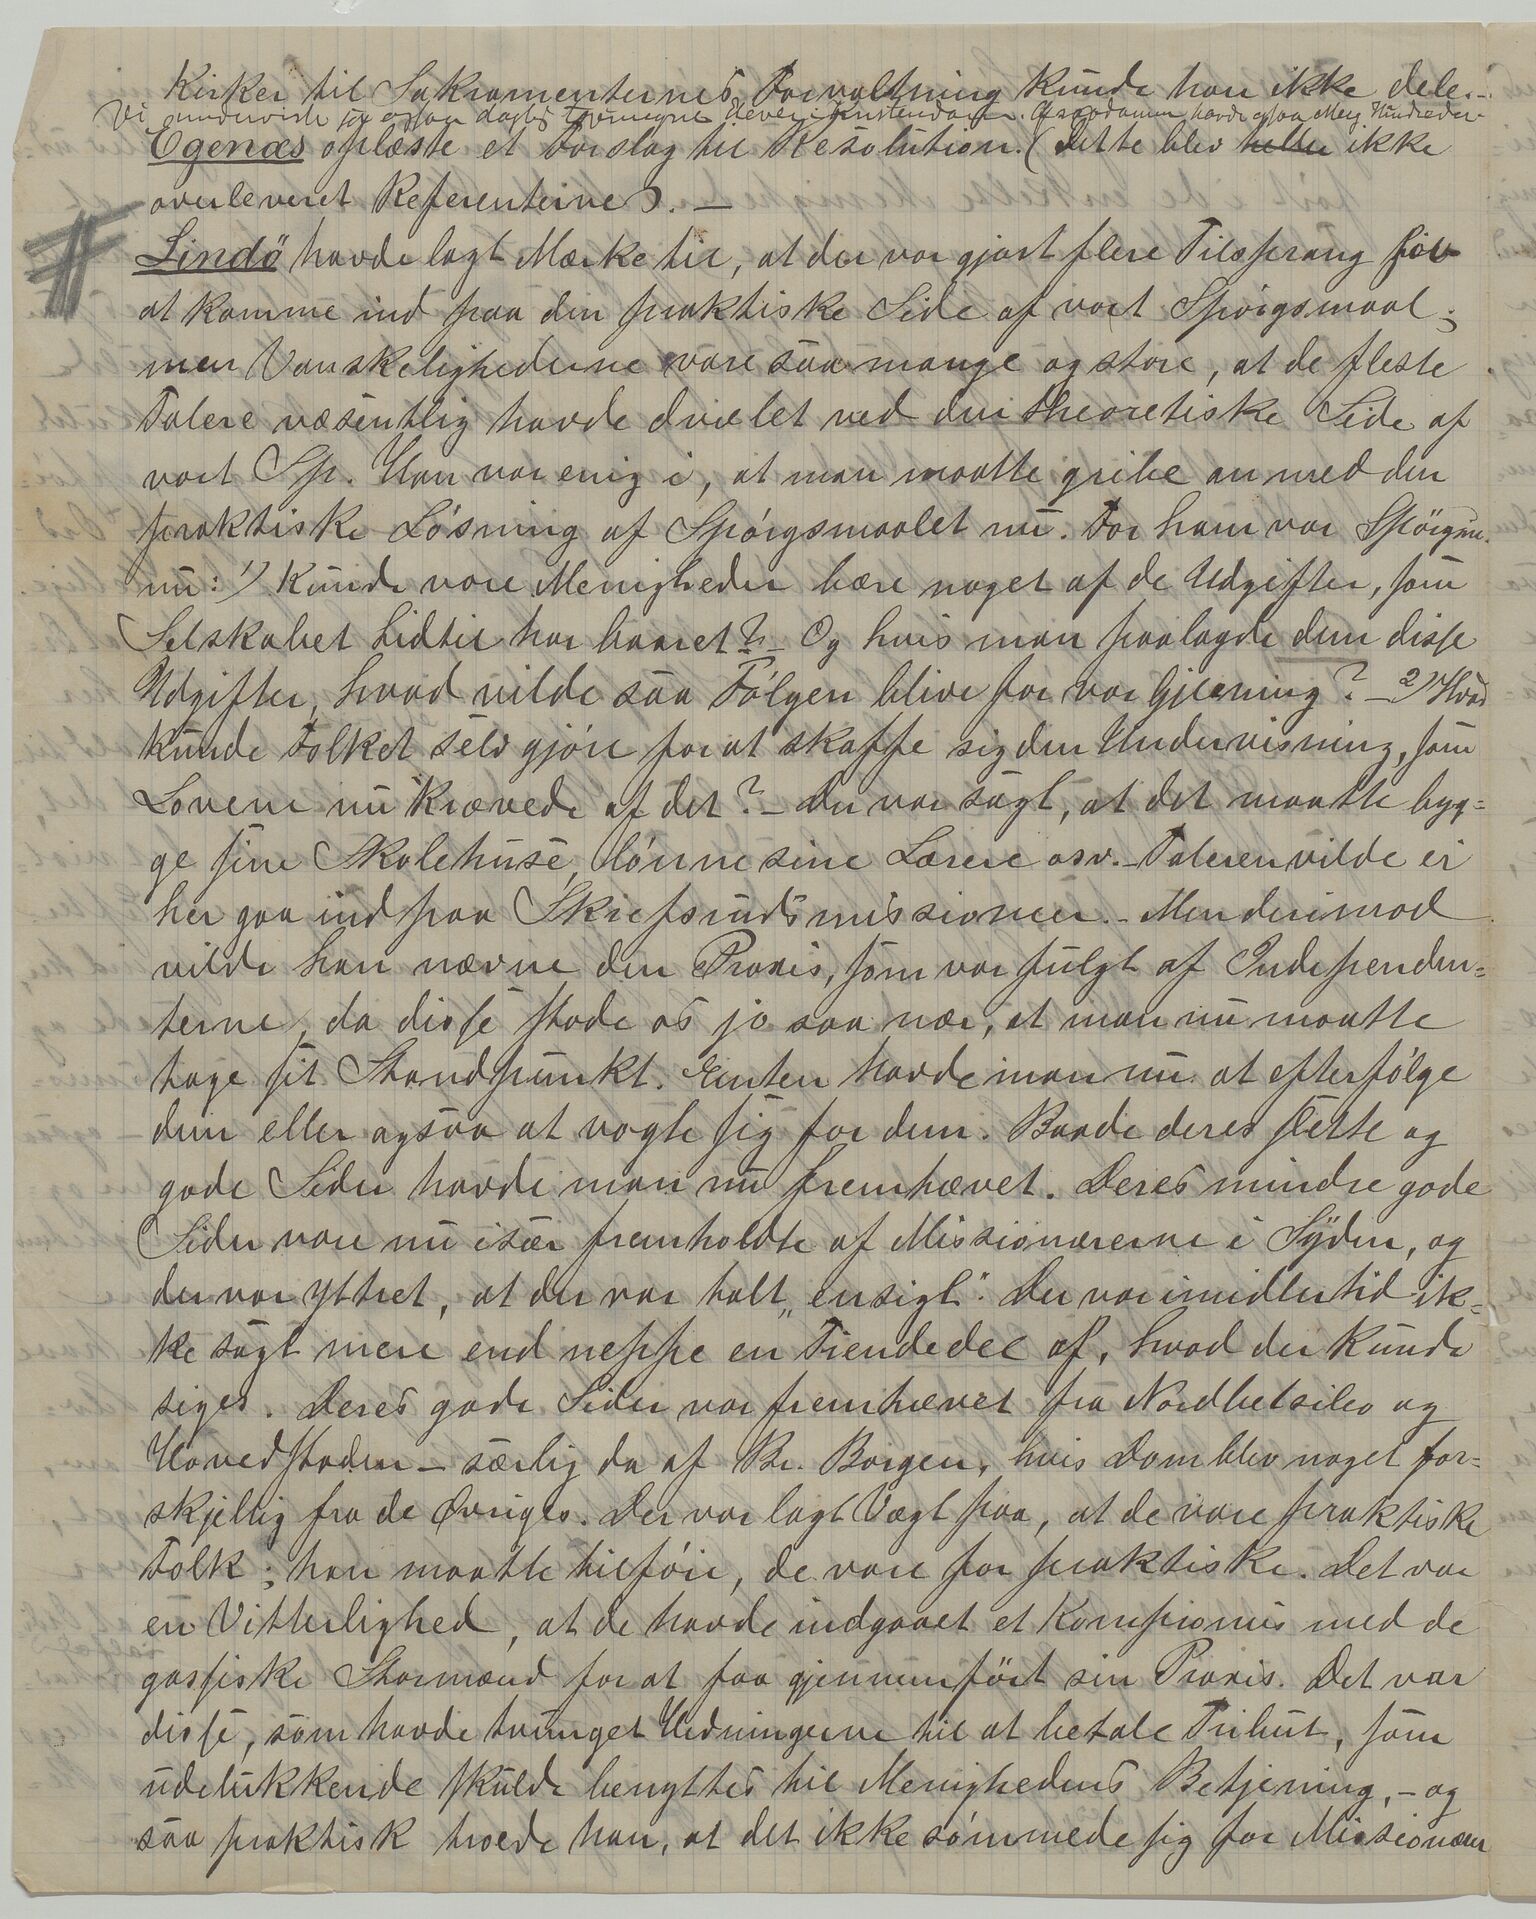 Kirker til Sakramenternes Forvaltning kunde han ikke dele. -
Vi underviste jo ogsaa daglig Tvungne Elever i Kristendom. havde ogsaa Menigheder
Egenæs oplæste et Forslag til Resolution. (Dette blev heller ikke
overleveret Referenterne). -
Lindö havde lagt Mærke til, at der var gjort flere Tilsprang for
at komme ind paa den praktiske Side af vort Spörgsmaal;
men Vanskelighederne vare saa mange og store, at de fleste
Talere væsentlig havde dvælet ved den theoretiske Side af
vort Sp. Han var enig i, at man maatte gribe an med den
praktiske Lösning af Spörgsmaalet nu. For ham var Spörgsm.
nu: 1) Kunde vore Menigheder bære noget af de Udgifter, som
Selskabet hidtil har baaret? - Og hvis man paalagde dem disse
Udgifter, hvad vilde saa Fölgen blive for vor Gjerning? - 2) Hvad
kunde Folket selv gjöre for at skaffe sig den Undervisning, som
Lovene nu krævede af det? - Der var sagt, at det maatte byg=
ge sine Skolehuse, lönne sine Lærere osv. - Taleren vilde ei
her gaa ind paa Skrefsrudsmissionen. - Men derimod
vilde han nævne den Praxis, som var fulgt af Independen=
terne, da disse stode os jo saa nær, at man nu maatte
tage sit Standpunkt. Enten havde man nu at efterfölge
dem eller ogsaa at vogte sig for dem. Baade deres slette og
gode Sider havde man nu fremhævet. Deres mindre gode
Sider vare nu især fremholdte af Missionærerne i Syden, og
der var yttret, at der var talt „ensigt“. Der var imidlertid ik=
ke sagt mere end neppe en Tiendedel af, hvad der kunde
siges. Deres gode Sider var fremhævet fra Nordbetsileo og
Hovedstaden - særlig da af Br. Borgen, hvis Dom blev noget for=
skjellig fra de Övriges. Der var lagt Vægt paa, at de vare praktiske
Folk; han maatte tilföie, de vare for praktiske. Det var
en Vitterlighed, at de havde indgaaet et Kompromis med de
gassiske Stormænd for at faa gjennemfört sin Praxis. Det var
disse, som havde tvunget Hedningerne til at betale Tribut, som
udelukkende skulde benyttes til Menighedens Betjening, - og
saa praktisk troede han, at det ikke sömmede sig for Missionær